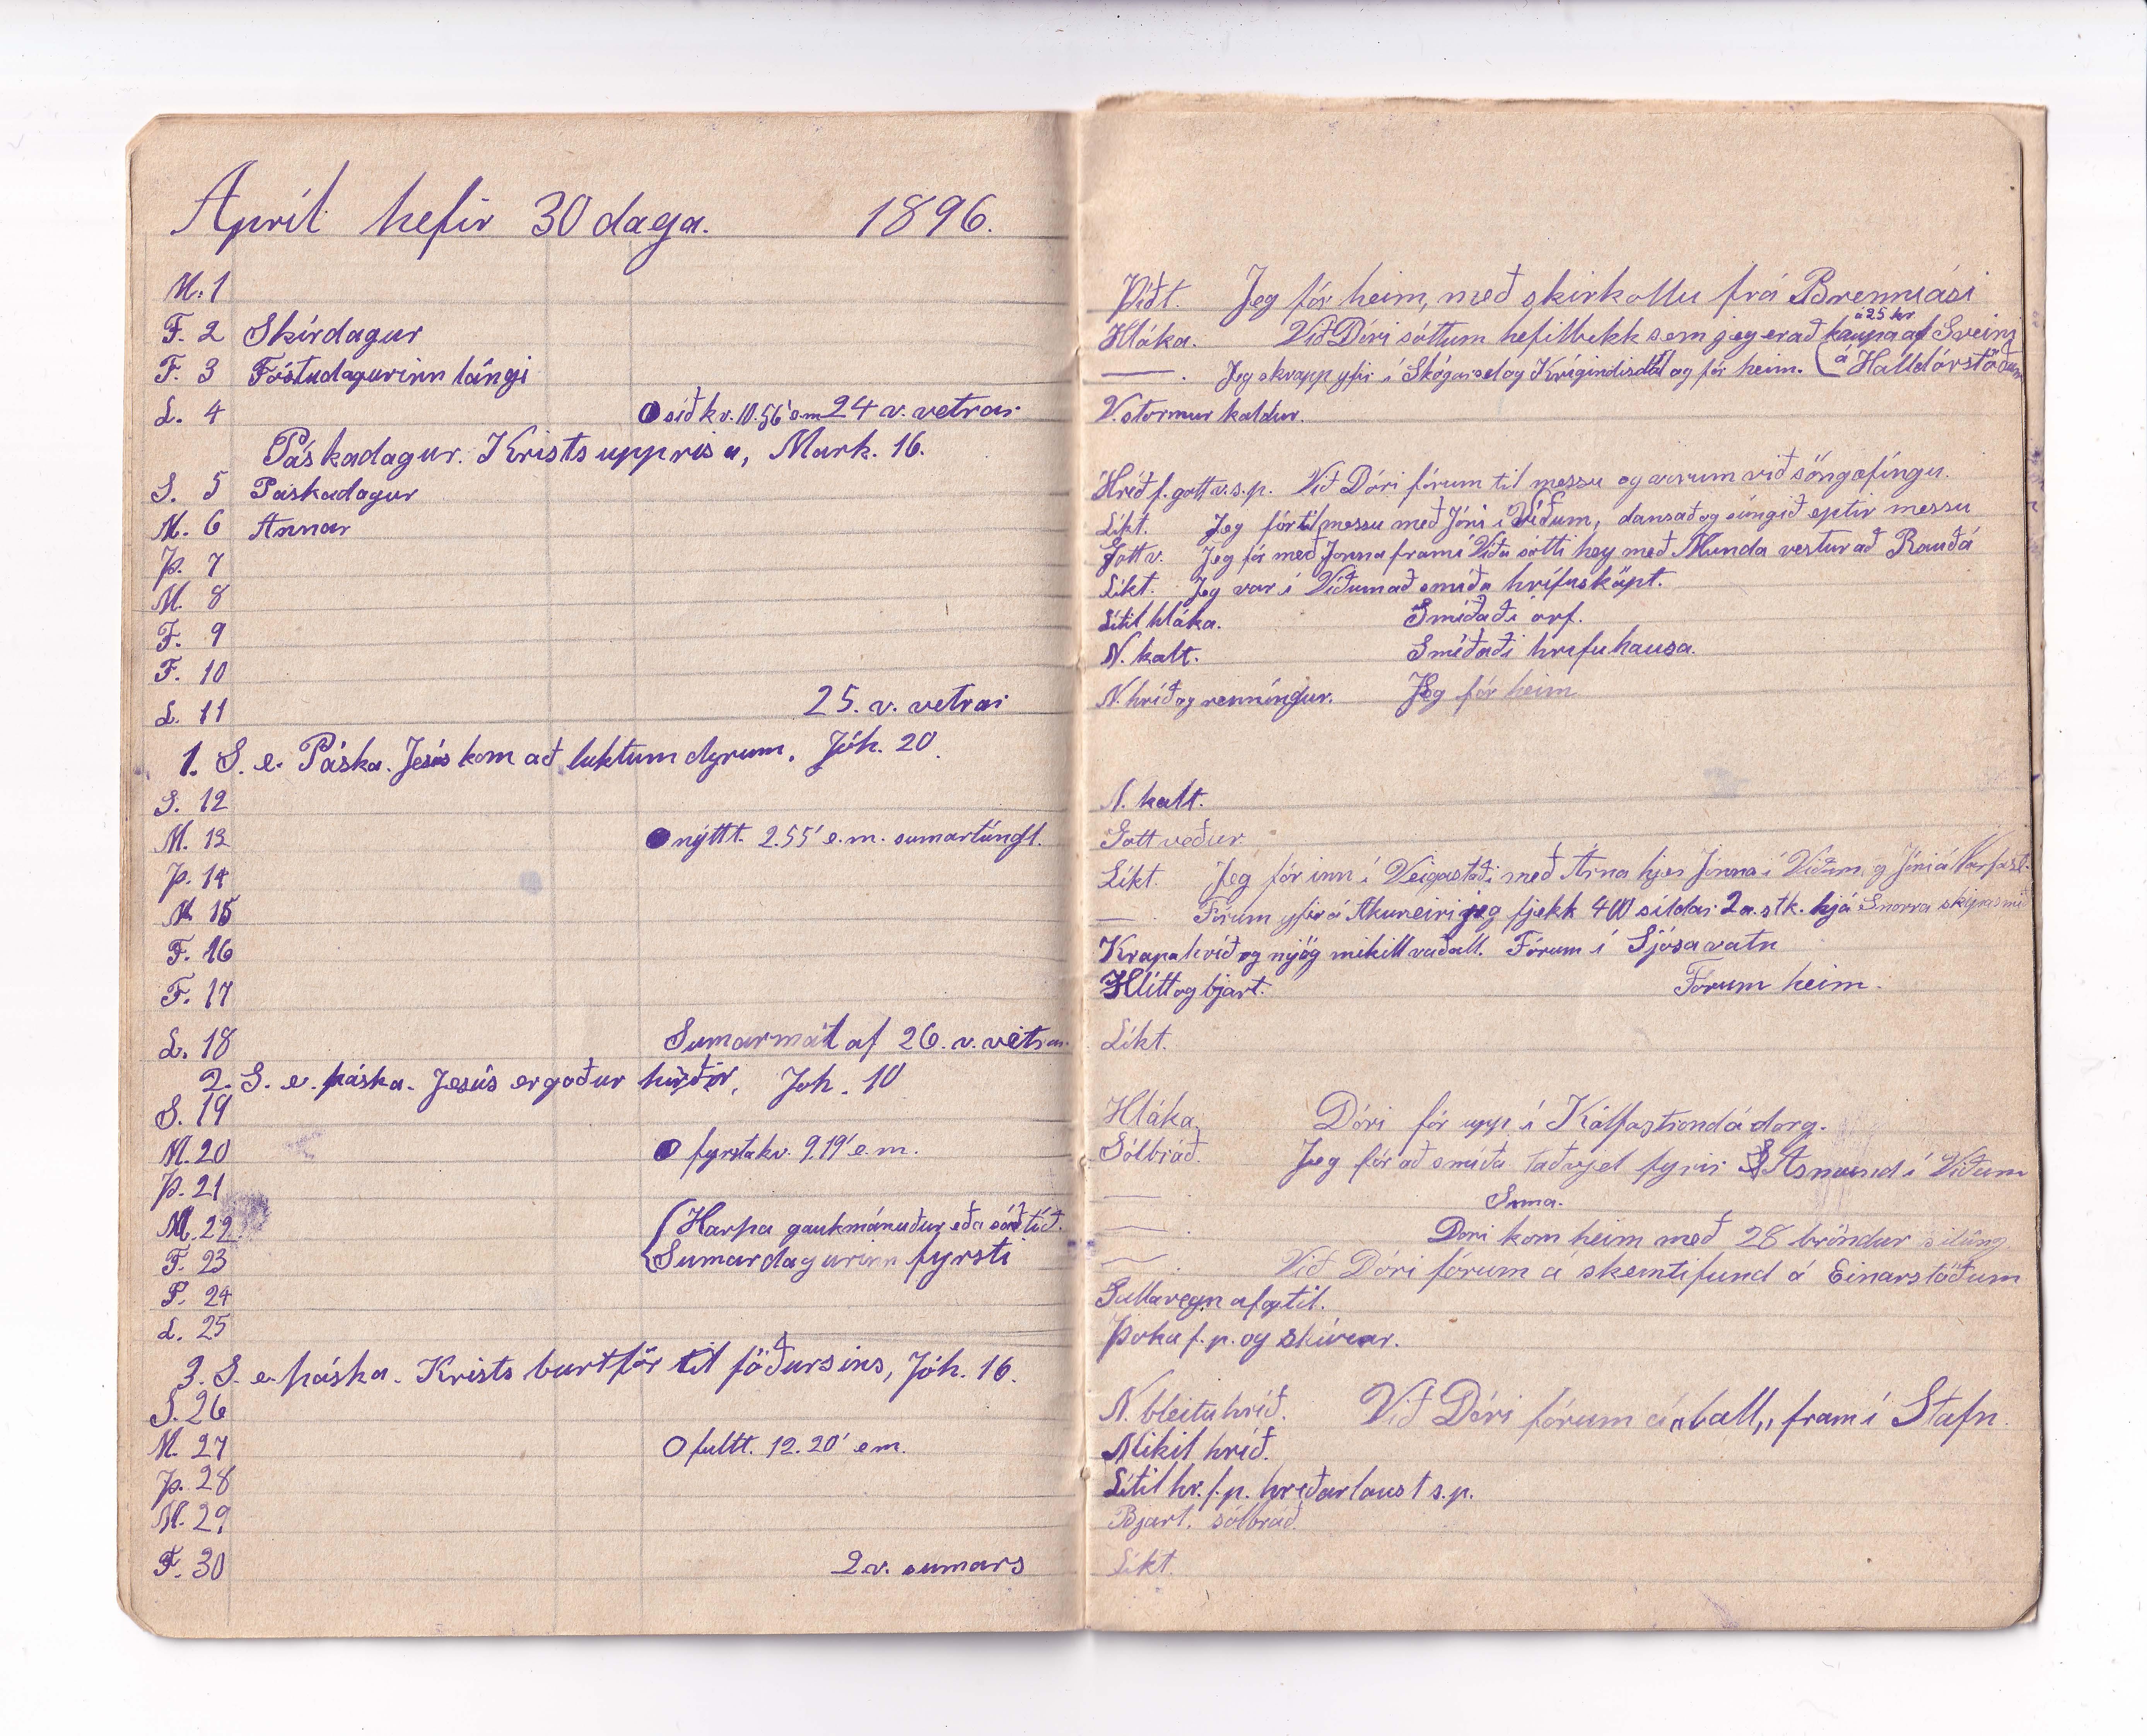 Apríl hefir 30 daga. 1896.
M. 1
F. 2 Skírdagur
F. 3 Föstudagurinn lángi
L. 4 síð kv. 10.56' e.m. 24 v. vetrar
Páskadagur. Krists upprisa, Mark. 16.
S. 5 Páskadagur
M. 6 Annar
Þ. 7
M. 8
F. 9
F. 10
L. 11 25. v. vetrar
1. S. e. Páska. Jesús kom að luktum dyrum, Jóh. 20.
S. 12
M. 13 nýtt t. 2.55' e.m. sumartúngl.
Þ. 14
M 15
F. 16
F. 17
L. 18 Sumarmál af 26. v. vetrar
2. S. e. páska. Jesús er goður hirðir, Joh. 10
S. 19
M. 20 fyrsta kv. 9.19' e.m.
Þ. 21
M. 22 (Harpa gaukmánuður eða sáðtíð.
F. 23 Sumardagurinn fyrsti
F. 24
L. 25
3. S. e. páska. Krists burtför til föðursins, Jóh. 16.
S. 26
M. 27 fullt t. 12.20' em.
Þ. 28
M. 29
F. 30 2 v. sumars
Jeg fór heim, með skirkollu frá Brenniási
á 25 kr
Hláka. Við Dóri sóttum hefilbekk sem jeg er að kaupa af Sveini
— . Jeg skrapp yfir í Skógarsel og og fór heim. (á Halldórstöðum
V. stormur kaldur.
Hríð f. gott v. s.p. Við Dóri fórum til messu og vorum við söngæfíngu.
Líkt. Jeg fór til messu með Jóni í Víðum, dansað og súngið eptir messu
Gott v. Jeg fór með Jonna fram í Víða sótti hey með Munda vestur að Rauðá
Líkt. Jeg var í Víðum að smíða hrífusköpt.
Lítil hláka. Smíðaði orf.
N. kalt. Smíðaði hrífuhausa.
N. hríð og renníngur. Jeg fór heim
N. kalt.
Gott veður.
Líkt. Jeg fór inn í Veigastaði með Árna Jonna í Víðum og Jóni á
— . Fórum yfir á Akureiri jeg fjekk 400 síldar 2 a. stk. hjá Snorra
Krapahríð og mjög mikill vaðall. Fórum í Ljósavatn
Hlítt og bjart. Fórum heim.
Líkt.
Hláka. Dóri fór upp í Kálfaströnd á dorg.
Sólbráð. Jeg fór að smíða taðvjel fyrir Ásmund í Víðum
— Sama.
— . Dóri kom heim með 28 bröndur silúng
— . Við Dóri fórum á skemtifund á Einarstöðum
Gullaregn af og til.
Þoka f.p. og skúrar.
N. bleituhríð. Við Dóri fórum á „ball„ fram í Stafn.
Mikil hríð.
Lítil hr. f.p. hríðarlaust s.p.
Bjart. sólbráð.
Líkt.